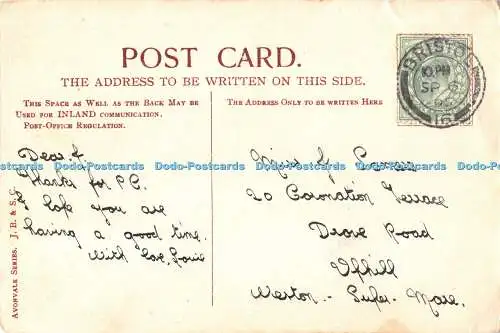 POST CARD.
THE ADDRESS TO BE WRITTEN ON THIS SIDE.
THIS SPACE AS WELL AS THE BACK MAY BE
USED FOR INLAND COMMUNICATION.
POST-OFFICE REGULATION.
THE ADDRESS ONLY TO BE WRITTEN HERE
BRISTOL
10.PM
SP 6
16
Dear f.
Thanks for P.C.
I hope you are
having a good time.
With love, Louie
Miss G.
20 Coronation Terrace
Drove Road
Uphill
Weston-Super-Mare.
AVONVALE SERIES. J. B. & S. C.
Dodo-Postcards Dodo-Postcards Dodo-Postcards Dodo-Postcards Dodo-Postcards